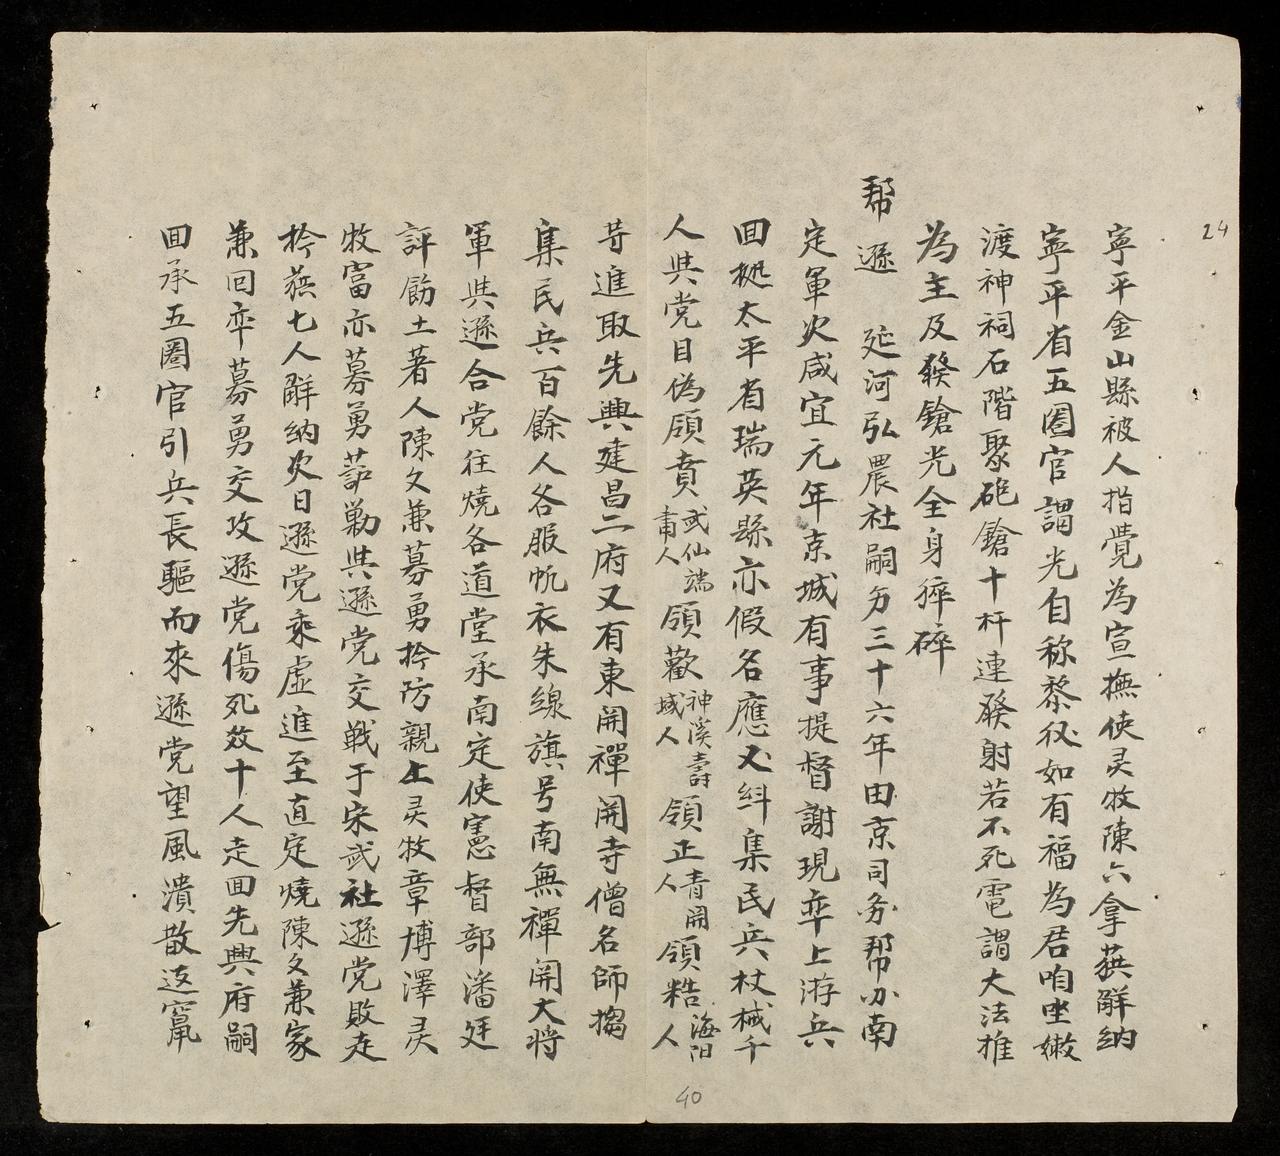 24
寧平金山縣被人指覺為宣撫使灵牧陳六拿蕻觧納
寧平省五圈官謂光自称黎攸如有福為君咱坐嫩
渡神祠石階聚砲鎗十杆連發射若不死電謂大法推
為主及發鎗光全身猝碎
帮遜 延河弘農社嗣 三十六年田京司务帮办南
定軍次咸宜元年京城有事提督謝現弈上游兵
囬拠太平省瑞英縣亦假名應又糾集民兵杖械千
人與党目偽領賁武仙端甫人領歡神溪壽域人領正青関人領糙海阳人
䓁進取先興建昌二府又有東関禪関寺僧名師㧾
集民兵百餘人各服帆衣朱線旗号南無禪関大将
軍與遜合党往燒各道堂承南定使憲督部潘廷
評飭土著人陳文兼募勇拎防親上灵牧章博澤灵
牧富亦募勇 勦與遜党交戦于宋武社遜党敗走
拎蕻七人觧納次日遜党乘虛進至直定燒陳文兼家
兼回弈募勇交攻遜党傷死数十人走囬先興府嗣
囬承五圈官引兵長驅而來遜党望風潰散迯竄
40